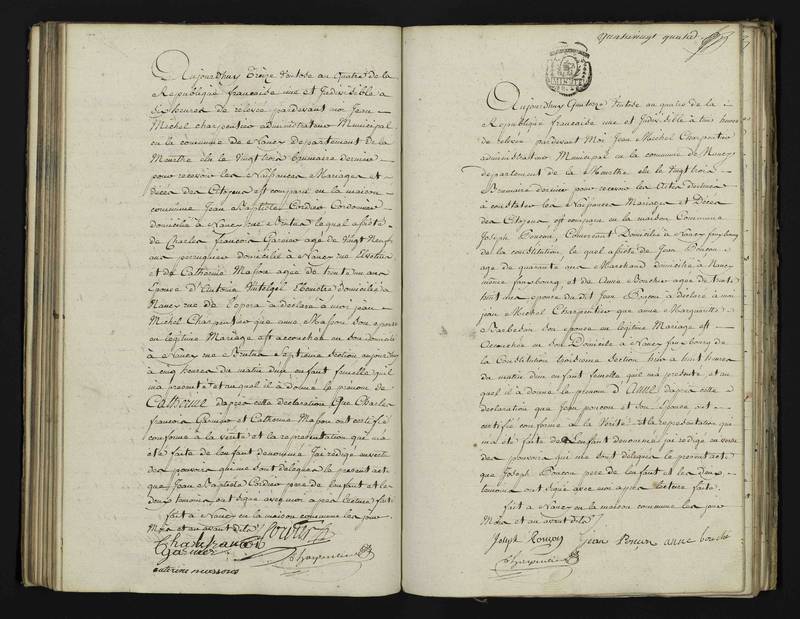 Aujourdhuy Treize Ventose au quatre de la
Republique francaise une et Indivisible à
Six heures de relevée pardevant moi Jean
Michel charpentier administrateur Municipal
en la commune de Nancy departement de la
Meurthe élu le Vingt trois brumaire dernier
pour recevoir les Naissances Mariages et
décès des Citoyens est comparu en la maison
commune Jean Baptiste Cordier Cordonnier
domicilié à Nancy rue Brutus lequel assisté
de Charles francois Garnier agé de Vingt Neuf
ans perruquier domicilié à Nancy rue
et de Catherine Masson agée de trente un ans
Epouse d'Antoine domiciliée à
Nancy rue de l'opera a déclaré à moi jean
Michel Charpentier que anne Masson son epouse
en légitime Mariage est accouchée en son domicile
à Nancy rue Brutus Septieme Section aujourdhuy
à cinq heures du matin d'un enfant femelle qu'il
m'a presenté et auquel il a donné le prenom de
Catherine d'après cette declaration Que Charles
francois Garnier et Catherine Masson ont certifié
conforme à la verité et la representation qui m'a
été faite de l'enfant denommé J'ai redigé en vertu
des pouvoirs qui me sont delegués le present acte
que Jean Baptiste Cordier père de l'enfant et les
deux temoins ont signé avec moi apres lecture faite
fait à Nancy en la maison commune les jour
Mois et an avant dits
Charle francois Cordier
Garnier
caterine massone Charpentier
quatrevingt quatre
Aujourdhuy Quatorze Ventose au quatre de la
Republique francaise une et Indivisible à trois heures
de relevée pardevant Moi Jean Michel Charpentier
administrateur Municipal en la commune de Nancy
departement de la Meurthe élu le Vingt trois
Brumaire dernier pour recevoir les Actes destinés
à constater les Naissances Mariages et Décès
des Citoyens est comparu en la maison Commune
Joseph Poncon, Commercant Domicilié à Nancy fauxbourg
de la constitution, le quel assisté de Jean Poncon
agé de quarante ans Marchand domicilié à Nancy
même fauxbourg et de Anne Bouchér agée de trente
huit ans epouse du dit Jean Poncon a déclaré à moi
jean Michel Charpentier que anne Marguerite
Barbedan Son epouse en légitime Mariage est
Accouchée en Son Domicile à Nancy fauxbourg de
la Constitution troisieme Section hier à huit heures
du matin d'un enfant femelle qu'il m'a presenté et au
quel il a donné le prenom d'Anne d'après cette
declaration que Jean poncon et Son Epouse ont
certifié conforme à la Verité et la representation qui
m'a été faite de l'enfant denommé j'ai redigé en vertu
des pouvoirs qui me sont delegués le present acte
que Joseph Poncon pere de l'enfant et les deux
temoins ont signé avec moi après lecture faite
fait à Nancy en la maison commune les jour
Mois et an avant dits
Joseph Jean anne bouché
Charpentier